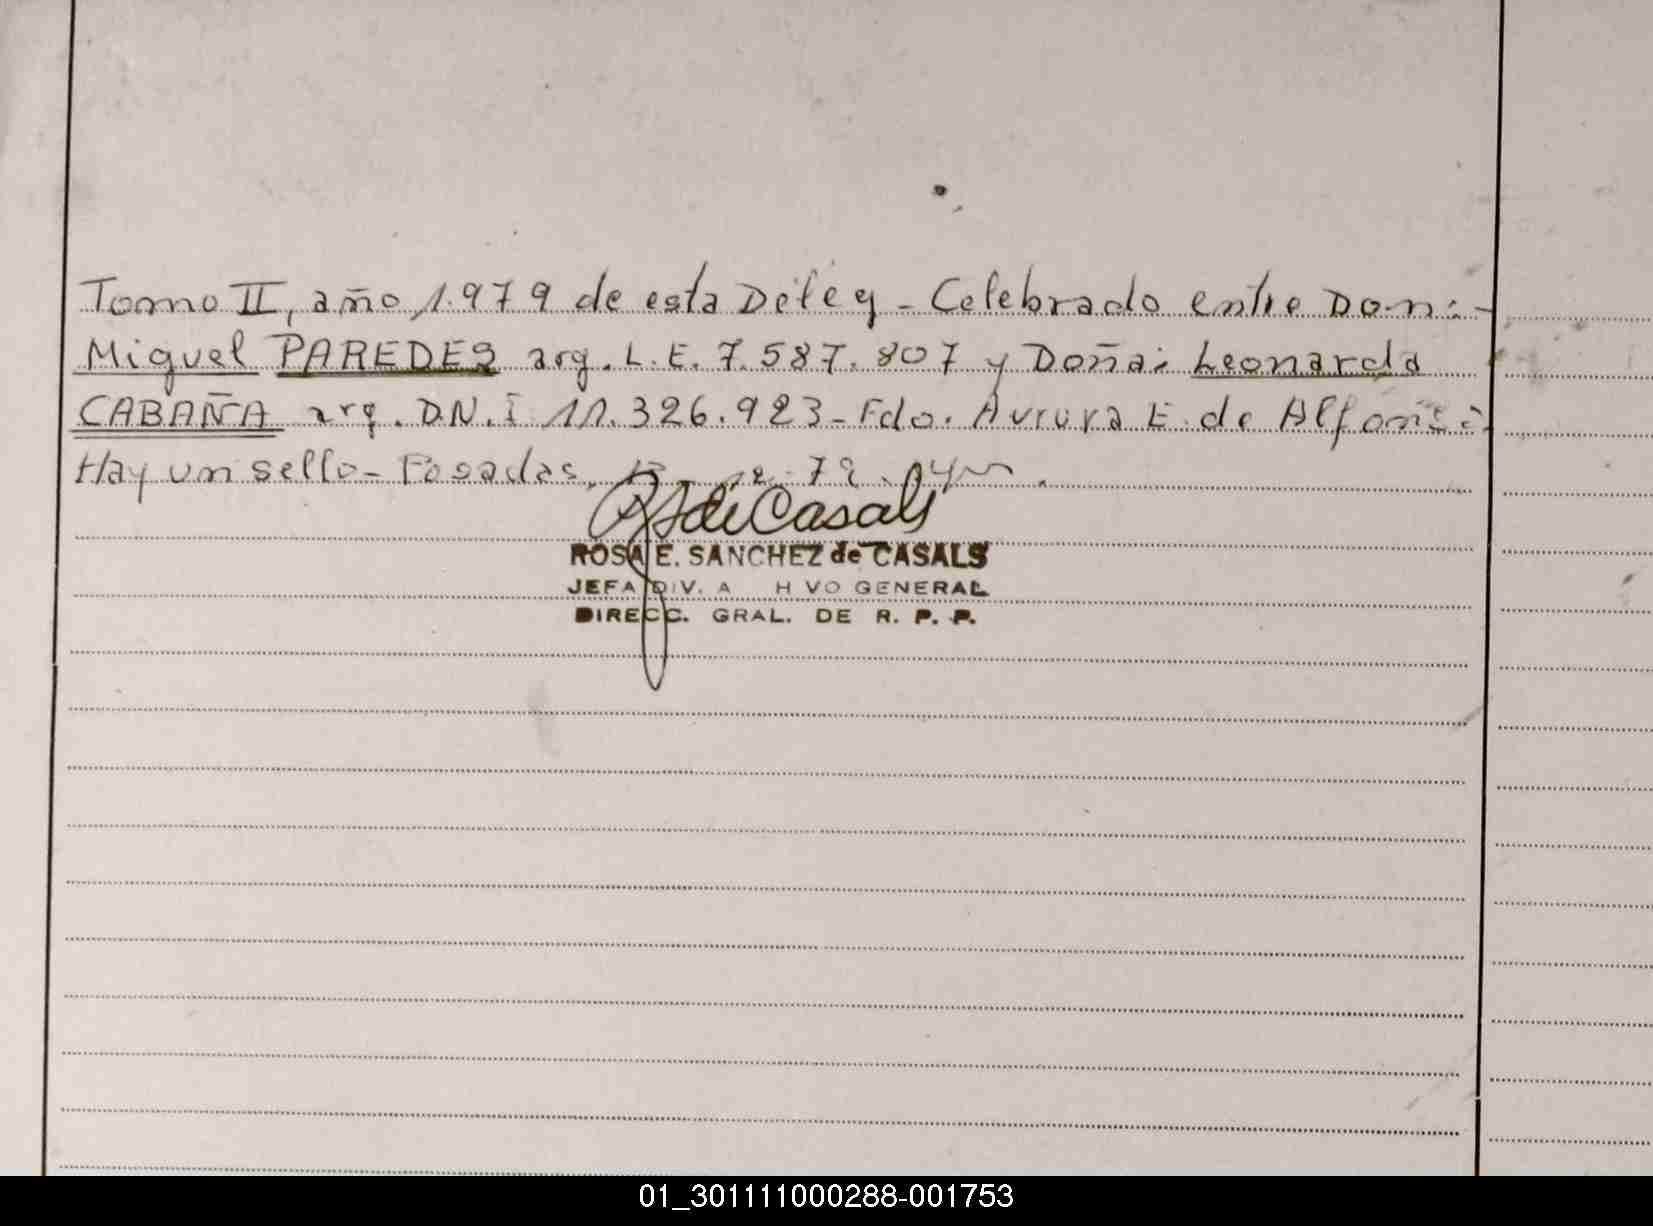 Tomo II, año 1.979 de esta Deleg - Celebrado entre Don:-
Miguel PAREDES arg. L.E. 7.587.807 y Doña: Leonarda
CABAÑA arg. D.N.I 11.326.923 - Fdo. Aurora E. de
Hay un sello - Posadas, 12 - 79.
ROSA E. SANCHEZ de CASALS
JEFA DIV. A H VO GENERAL
DIRECC. GRAL. DE R. P. P.
01_301111000288-001753